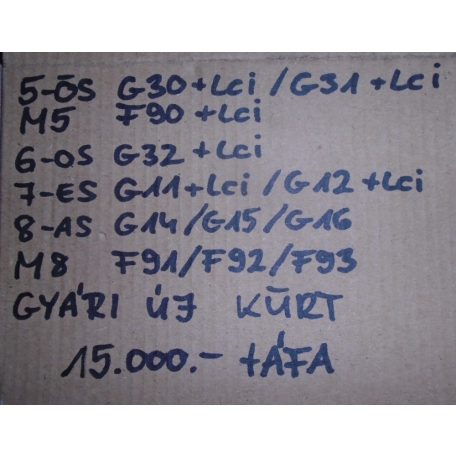 5-ÖS G30+Lci/G31+Lci
M5 F90+Lci
6-OS G32+Lci
7-ES G11+Lci/G12+Lci
8-AS G14/G15/G16
M8 F91/F92/F93
GYÁRI ÚJ KÜRT
15.000.- +ÁFA